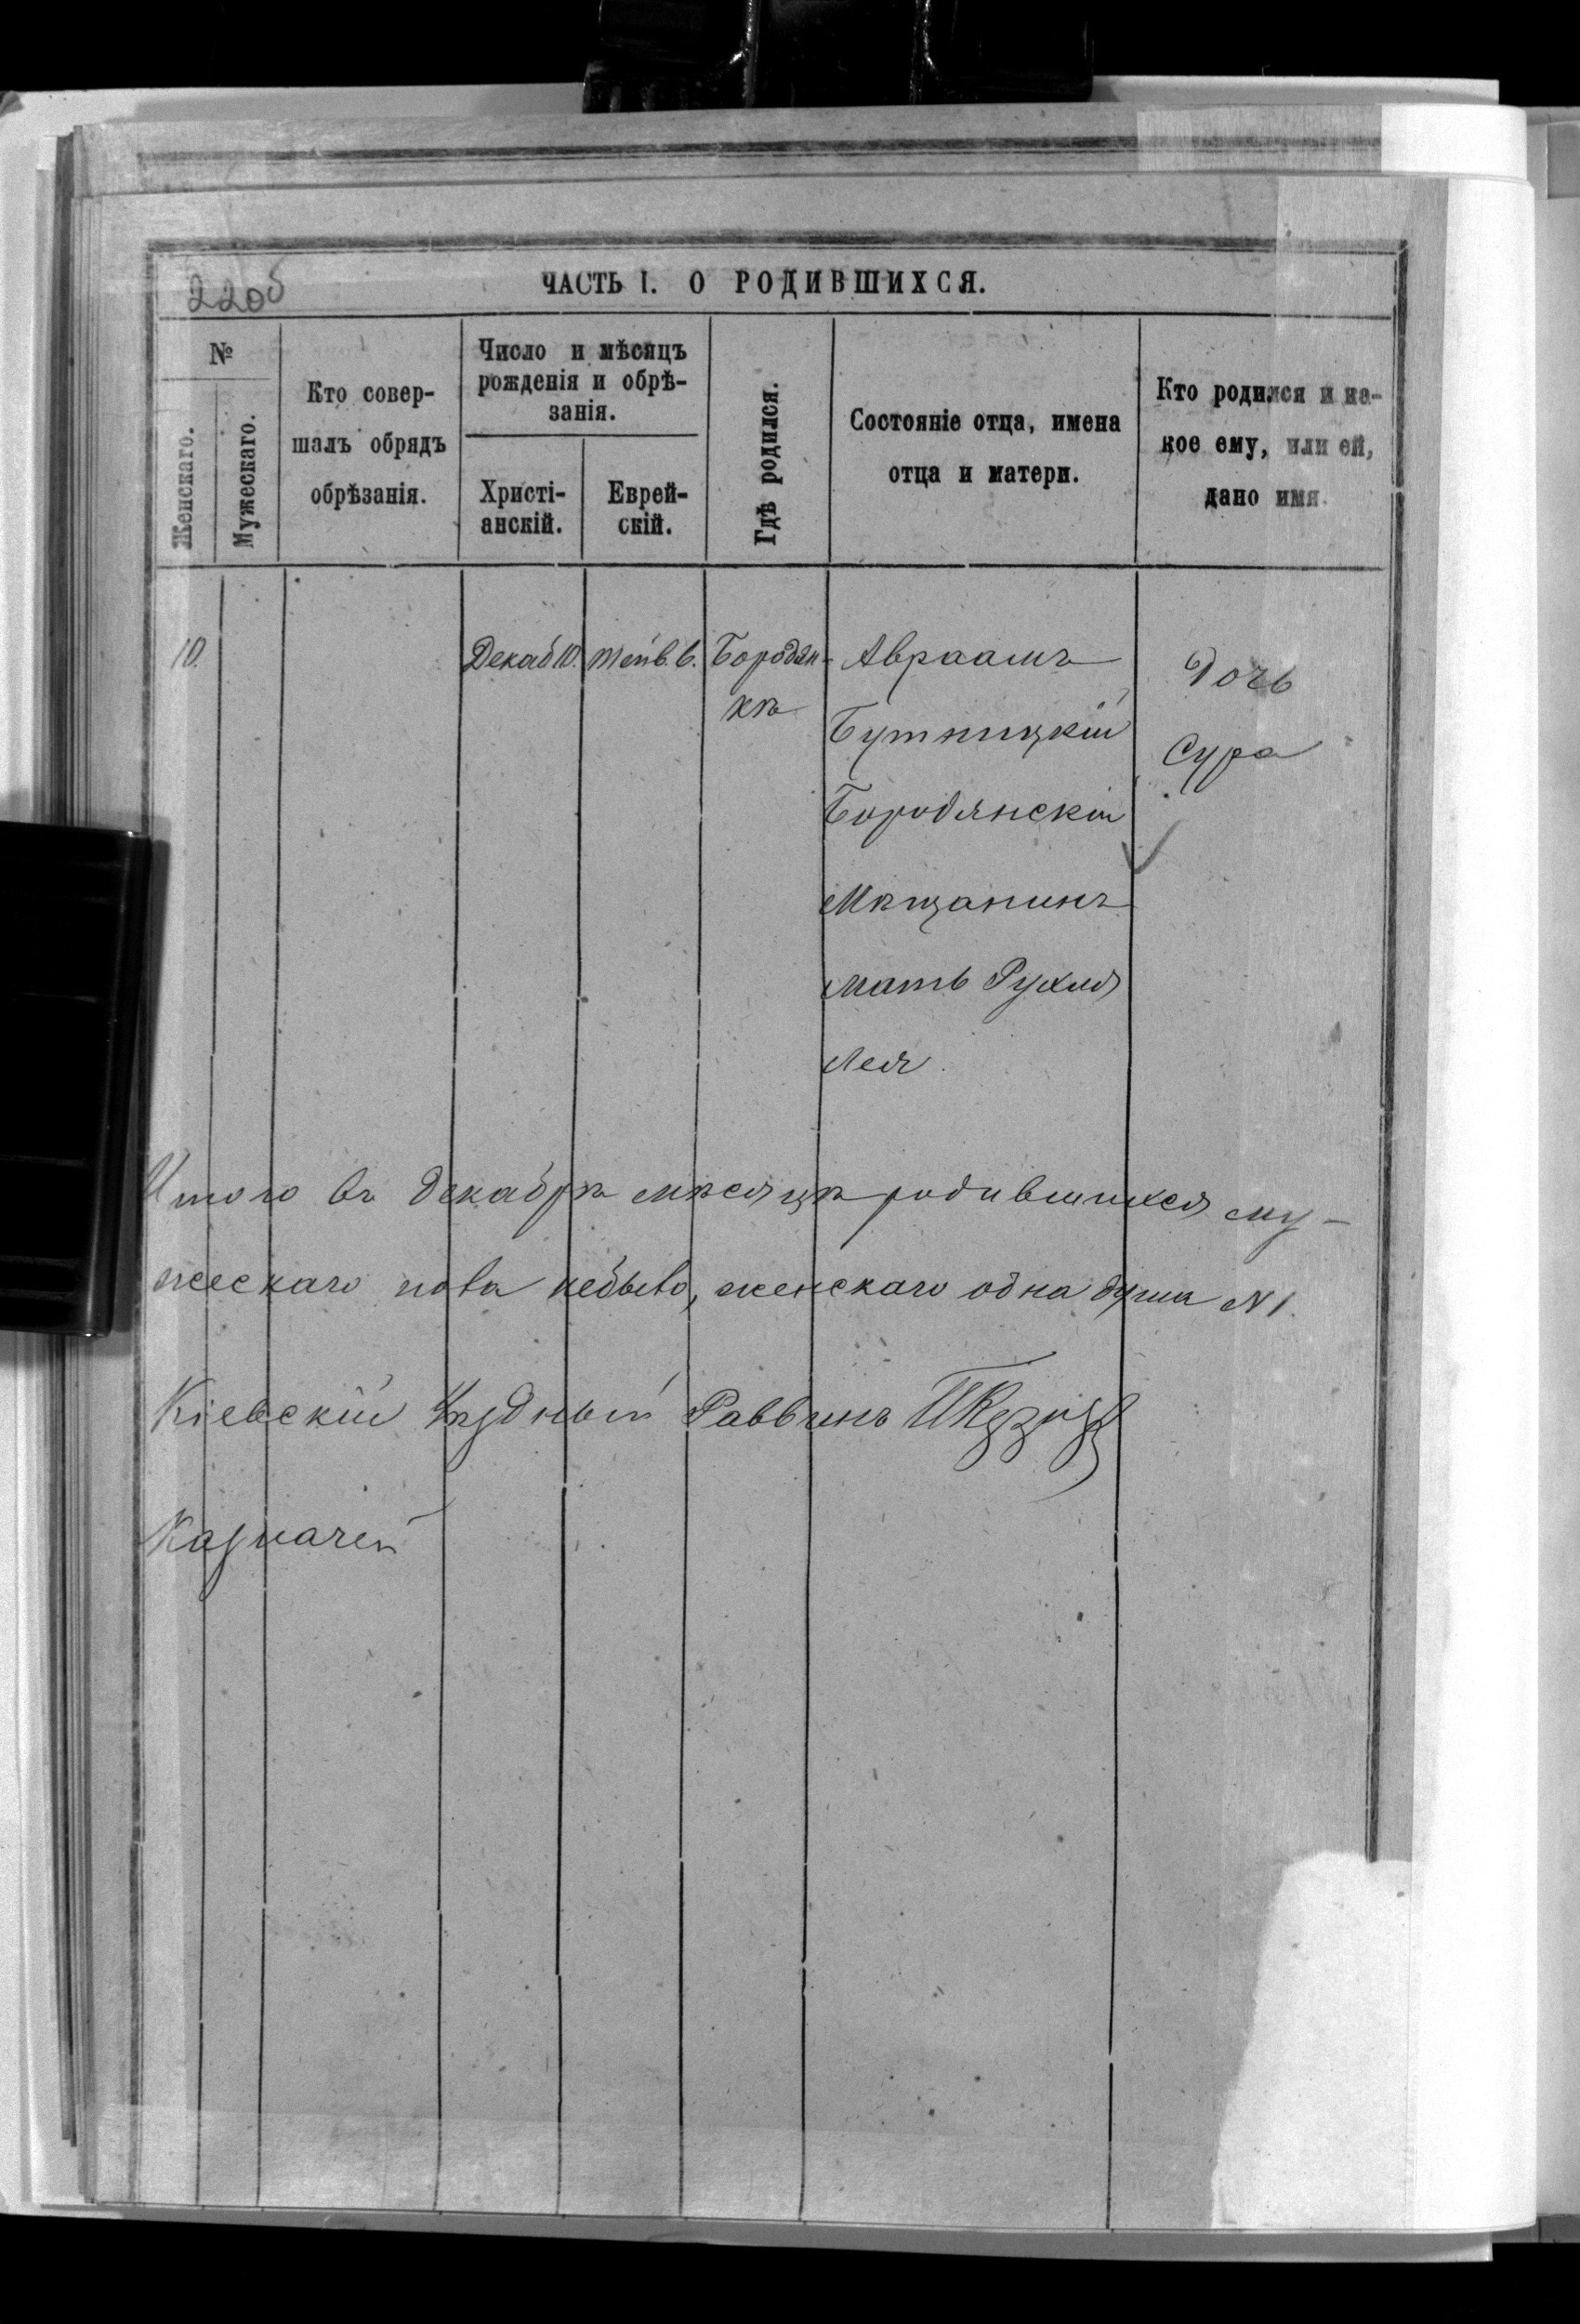 220б
ЧАСТЬ I. О РОДИВШИХСЯ.
№
Женскаго.
Мужескаго.
Кто совер-
шалъ обрядъ
обрѣзанія.
Число и мѣсяцъ
рожденія и обрѣ-
занія.
Христі-
анскій.
Еврей-
скій.
Гдѣ родился.
Состояніе отца, имена
отца и матери.
Кто родился и ка-
кое ему, или ей,
дано имя.
10.
Декаб 10.
Тейв. 6.
Бородян-
кѣ
Авраамъ
Бутницкій
Бородянскій
Мѣщанинъ
мать Рухля
Лея.
Дочь
Сура
Итого въ декабрѣ мѣсяцѣ родившихся му-
жескаго пола небыло, женскаго одна душа N 1.
Кіевскій Уѣздный Раввинъ
Казначей